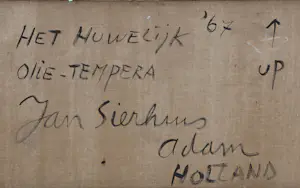 HET HUWELIJK '67 ↑
OLIE-TEMPERA UP
Jan Sierhuis
Adam
HOLLAND